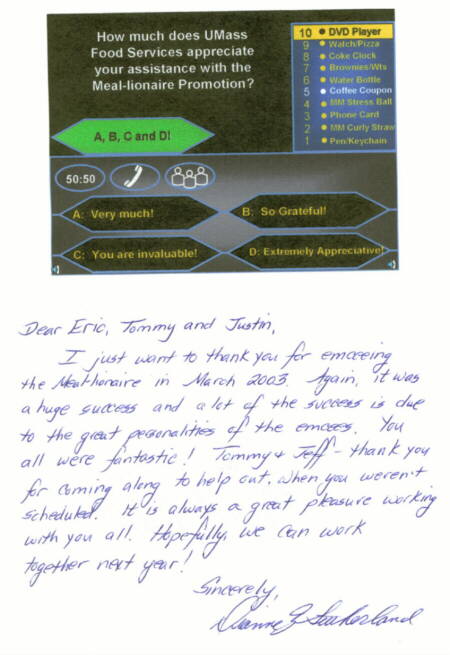 How much does UMass
Food Services appreciate
your assistance with the
Meal-lionaire Promotion?
A, B, C and D!
10 • DVD Player
9 • Watch/Pizza
8 • Coke Clock
7 • Brownies/Wts
6 • Water Bottle
5 • Coffee Coupon
4 • MM Stress Ball
3 • Phone Card
2 • MM Curly Straw
1 • Pen/Keychain
50:50
A: Very much!
B: So Grateful!
C: You are invaluable!
D: Extremely Appreciative!
Dear Eric, Tommy and Justin,
I just want to thank you for emceeing
the Meal-lionaire in March 2003. Again, it was
a huge success and a lot of the success is due
to the great personalities of the emcees. You
all were fantastic! Tommy + Jeff - thank you
for coming along to help out, when you weren't
scheduled. It is always a great pleasure working
with you all. Hopefully, we can work
together next year!
Sincerely,
Dianne Z Sutherland